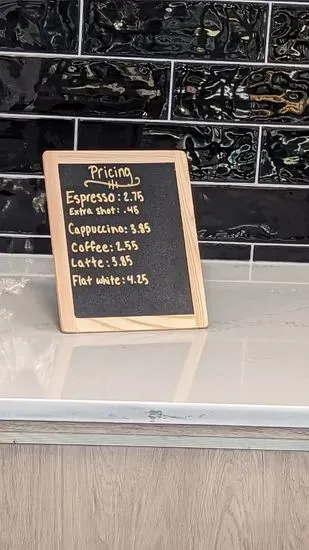 Pricing
Espresso: 2.75
Extra shot: .45
Cappuccino: 3.85
Coffee: 2.55
Latte: 3.85
Flat white: 4.25